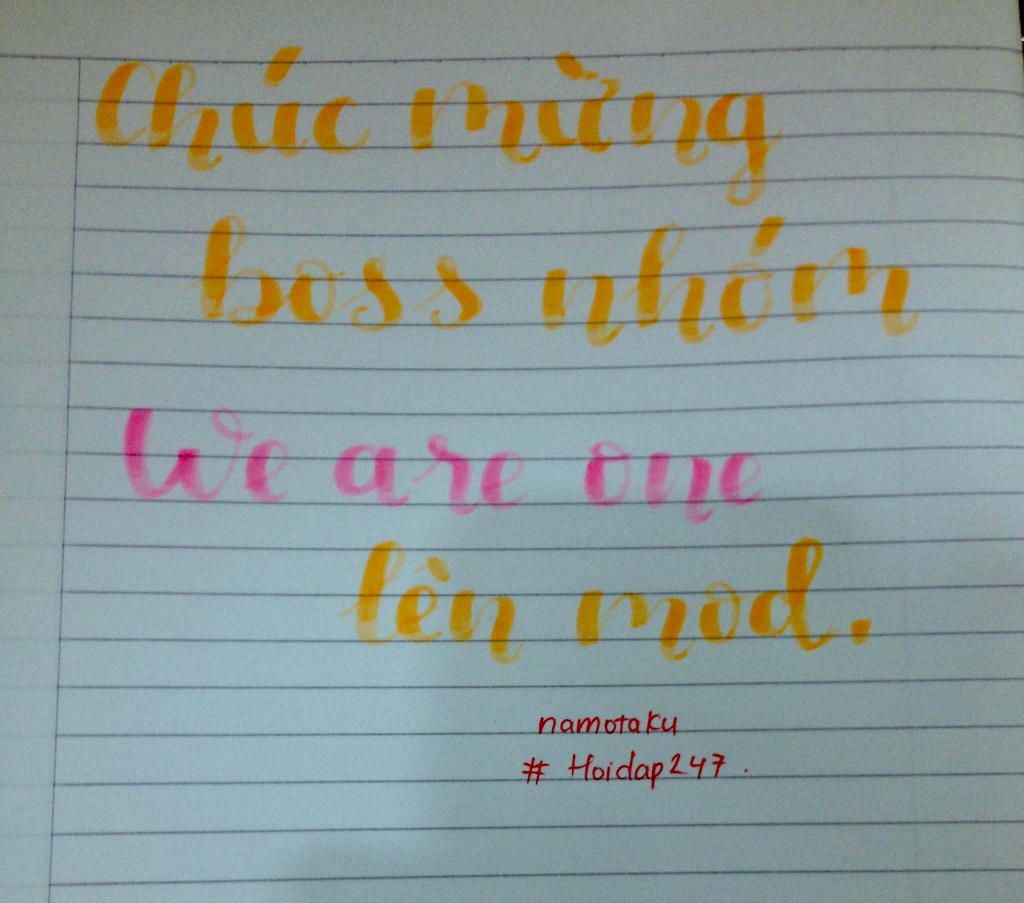 Chúc mừng
boss nhóm
We are one
lên mod.
namotaku
# Hoidap247.